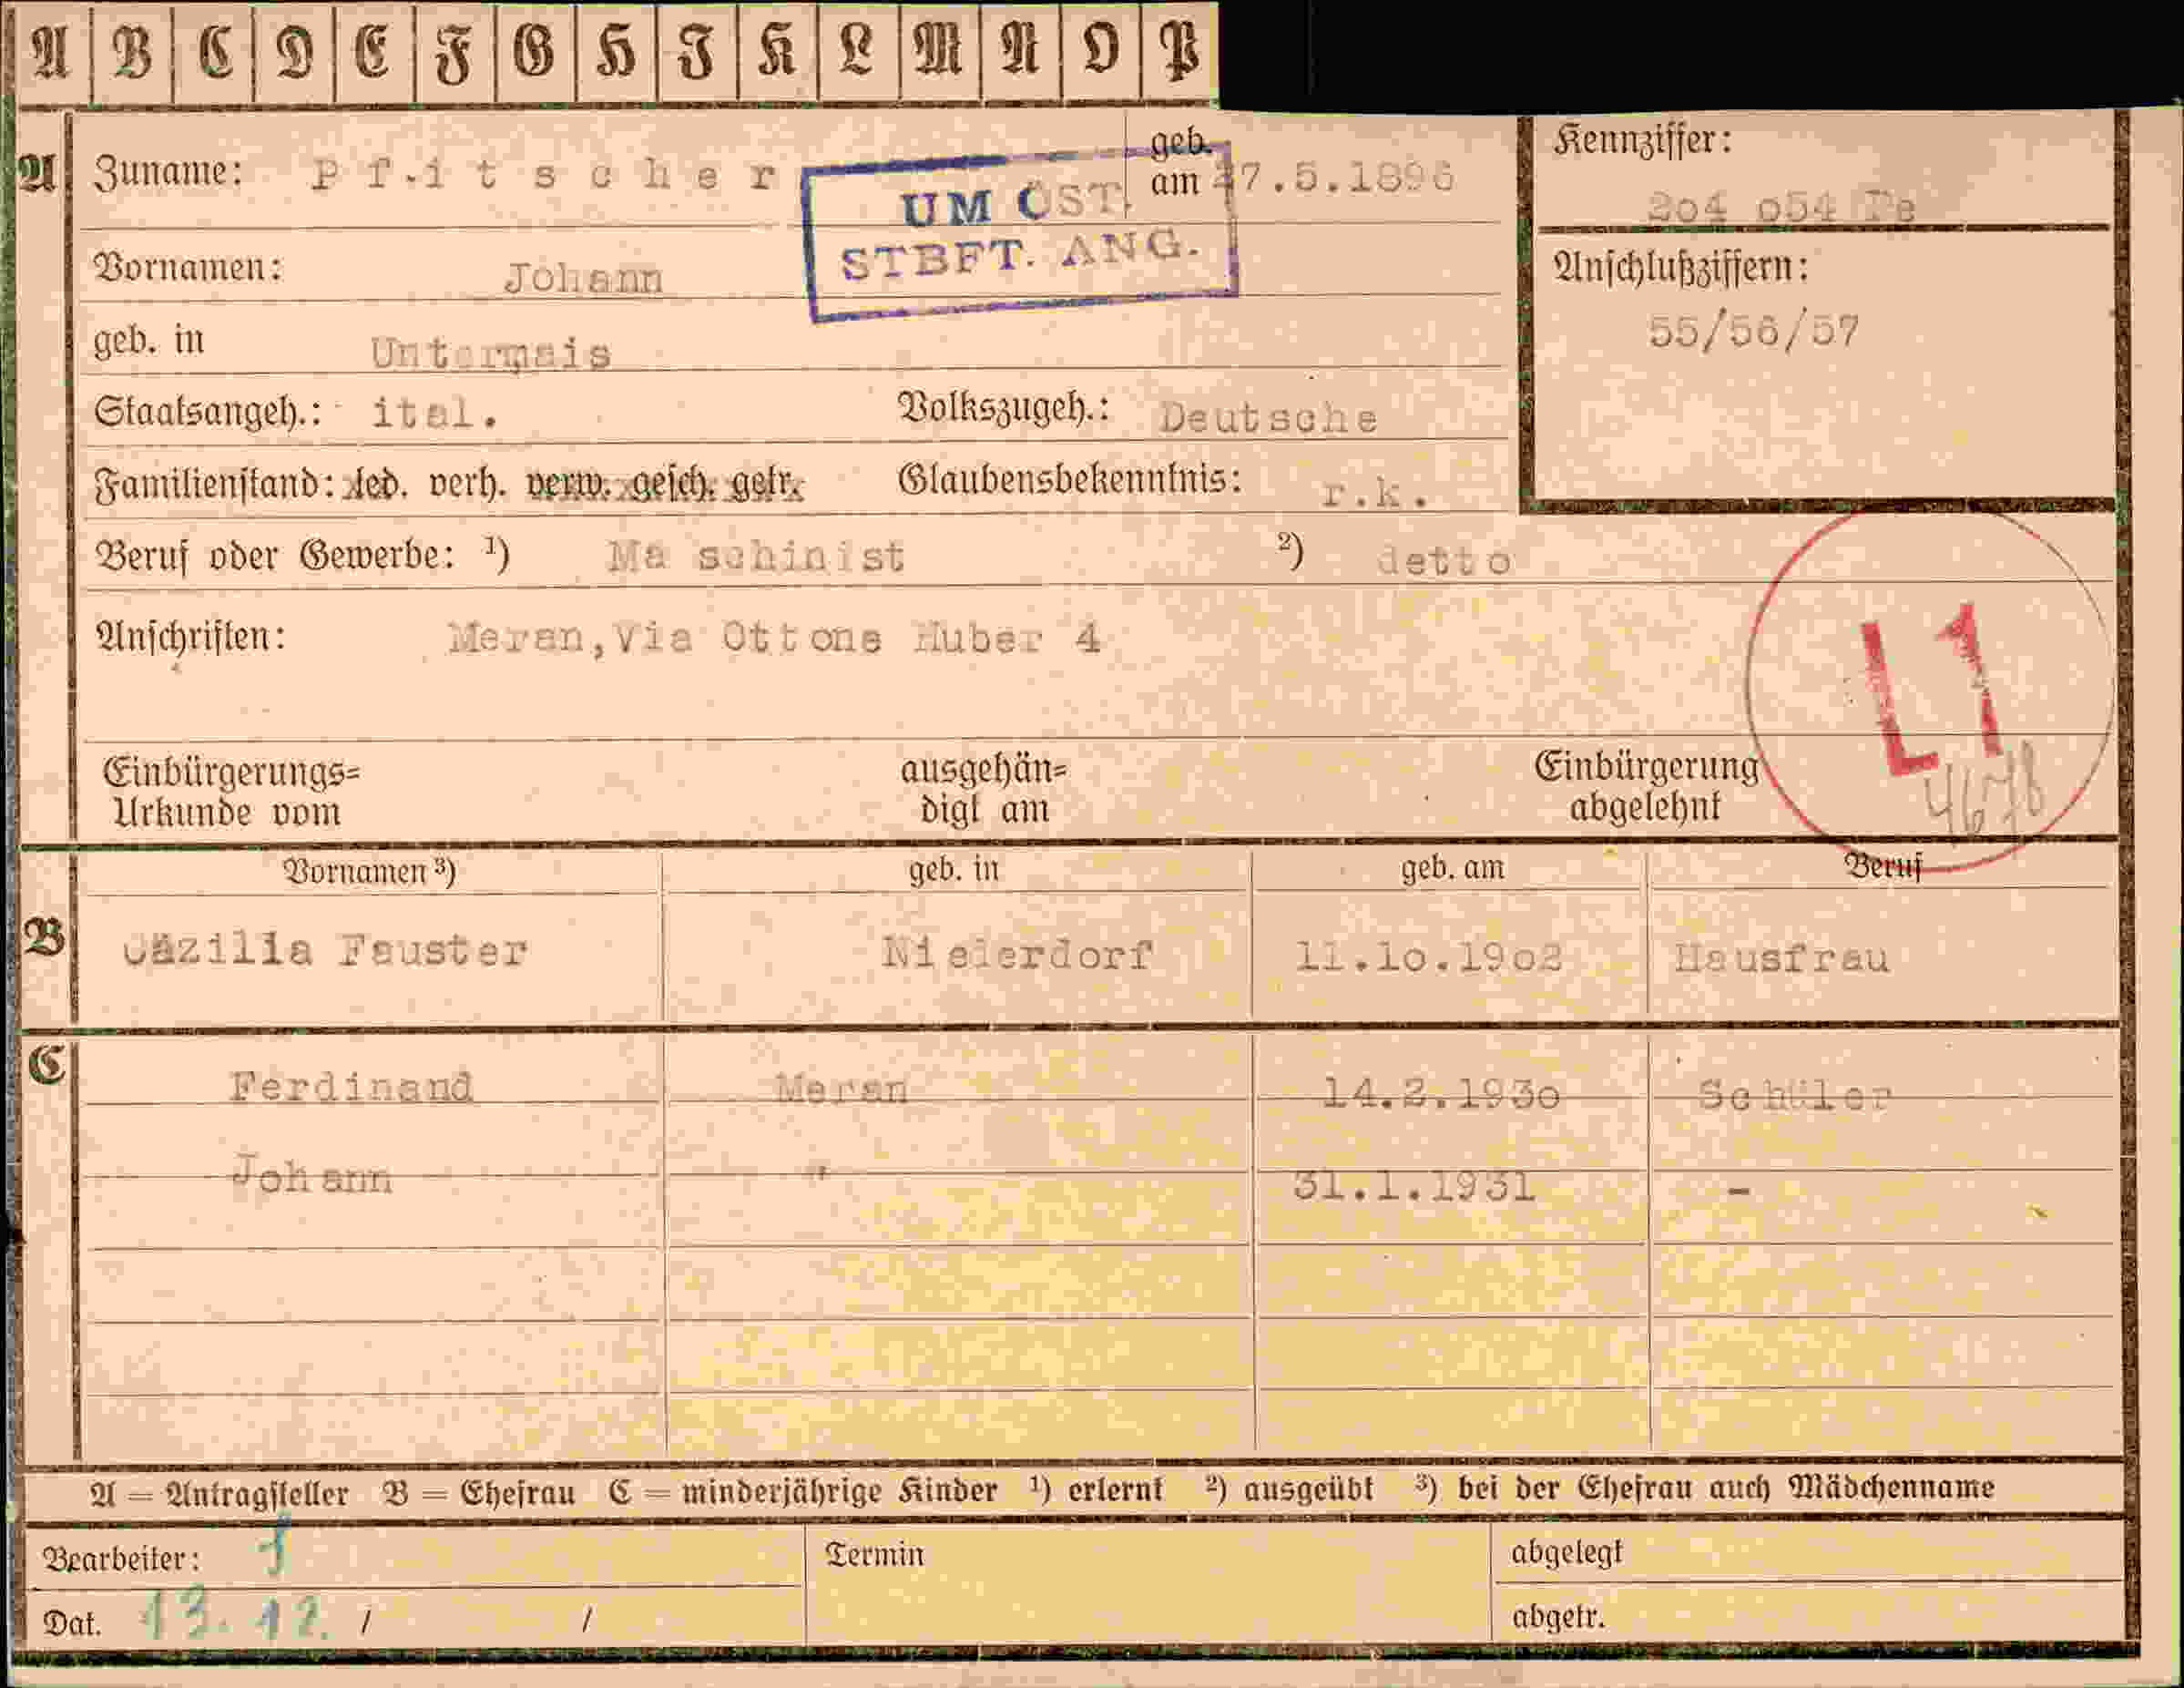 A B C D E F G H I K L M N O P
A Zuname: Pf.itscher geb. am 27.5.1896 Kennziffer:
204 054 Pe
UM ÖST.
STBFT. ANG.
Vornamen: Johann Anschlußziffern:
55/56/57
geb. in Untermais
Staatsangeh.: ital. Volkszugeh.: Deutsche
Familienstand: led. verh. verw. gesch. getr. Glaubensbekenntnis: r.k.
Beruf oder Gewerbe: ¹) Ma schinist ²) detto
Anschriften: Meran,Via Ottone Huber 4
L1
4678
Einbürgerungs= ausgehän= Einbürgerung
Urkunde vom digt am abgelehnt
Vornamen ³) geb. in geb. am Beruf
B Cäzilia Fauster 11.10.1902 Hausfrau
C Ferdinand Meran 14.2.1930 Schüler
Johann " 31.1.1931 -
A = Antragsteller B = Ehefrau C = minderjährige Kinder ¹) erlernt ²) ausgeübt ³) bei der Ehefrau auch Mädchenname
Bearbeiter: Termin abgelegt
Dat. 13.12. / / abgetr.